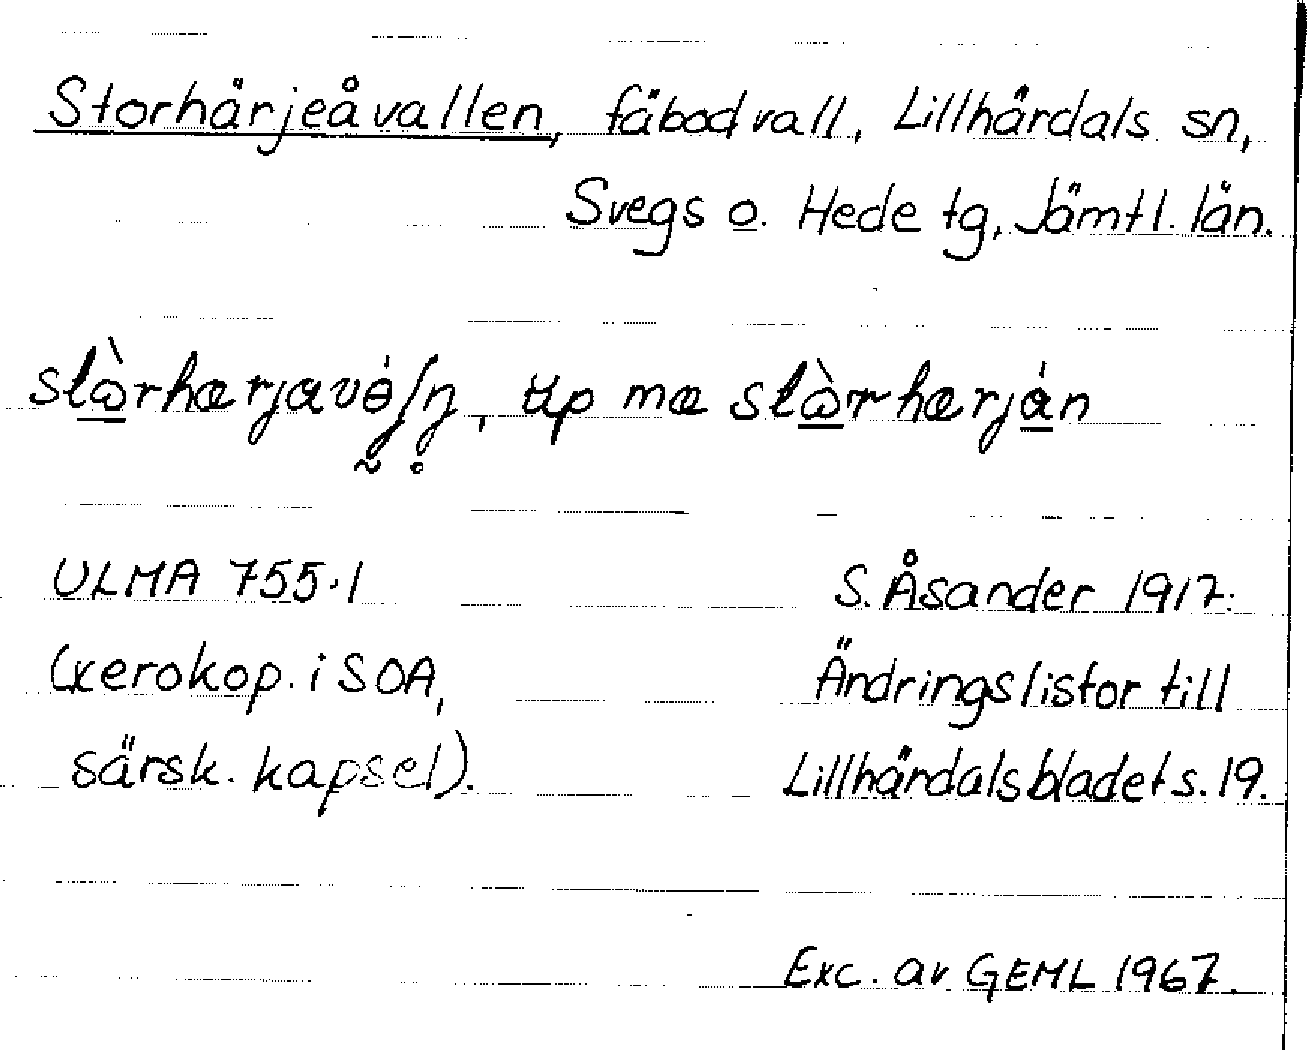 Storhärjeåvallen, fäbodvall, Lillhärdals sn,
Svegs o. Hede tg, Jämtl. län.
ma
ULMA 755:1 S. Åsander 1917:
(xerokop. i SOA, Ändringslistor till
särsk. kapsel). Lillhärdalsbladet s. 19.
Exc. av GEML 1967.